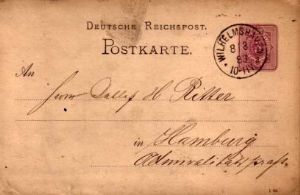 DEUTSCHE REICHSPOST.
POSTKARTE.
WILHELMSHAVEN
8 3
83
10-11V
An
Herrn Detlef H. Ritter
in Hamburg
Admiralitätstrasse